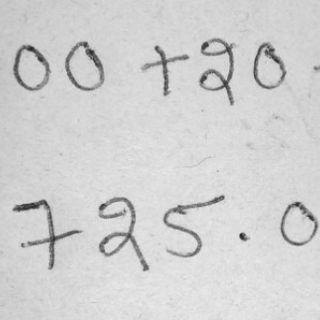 00 +20
725.0